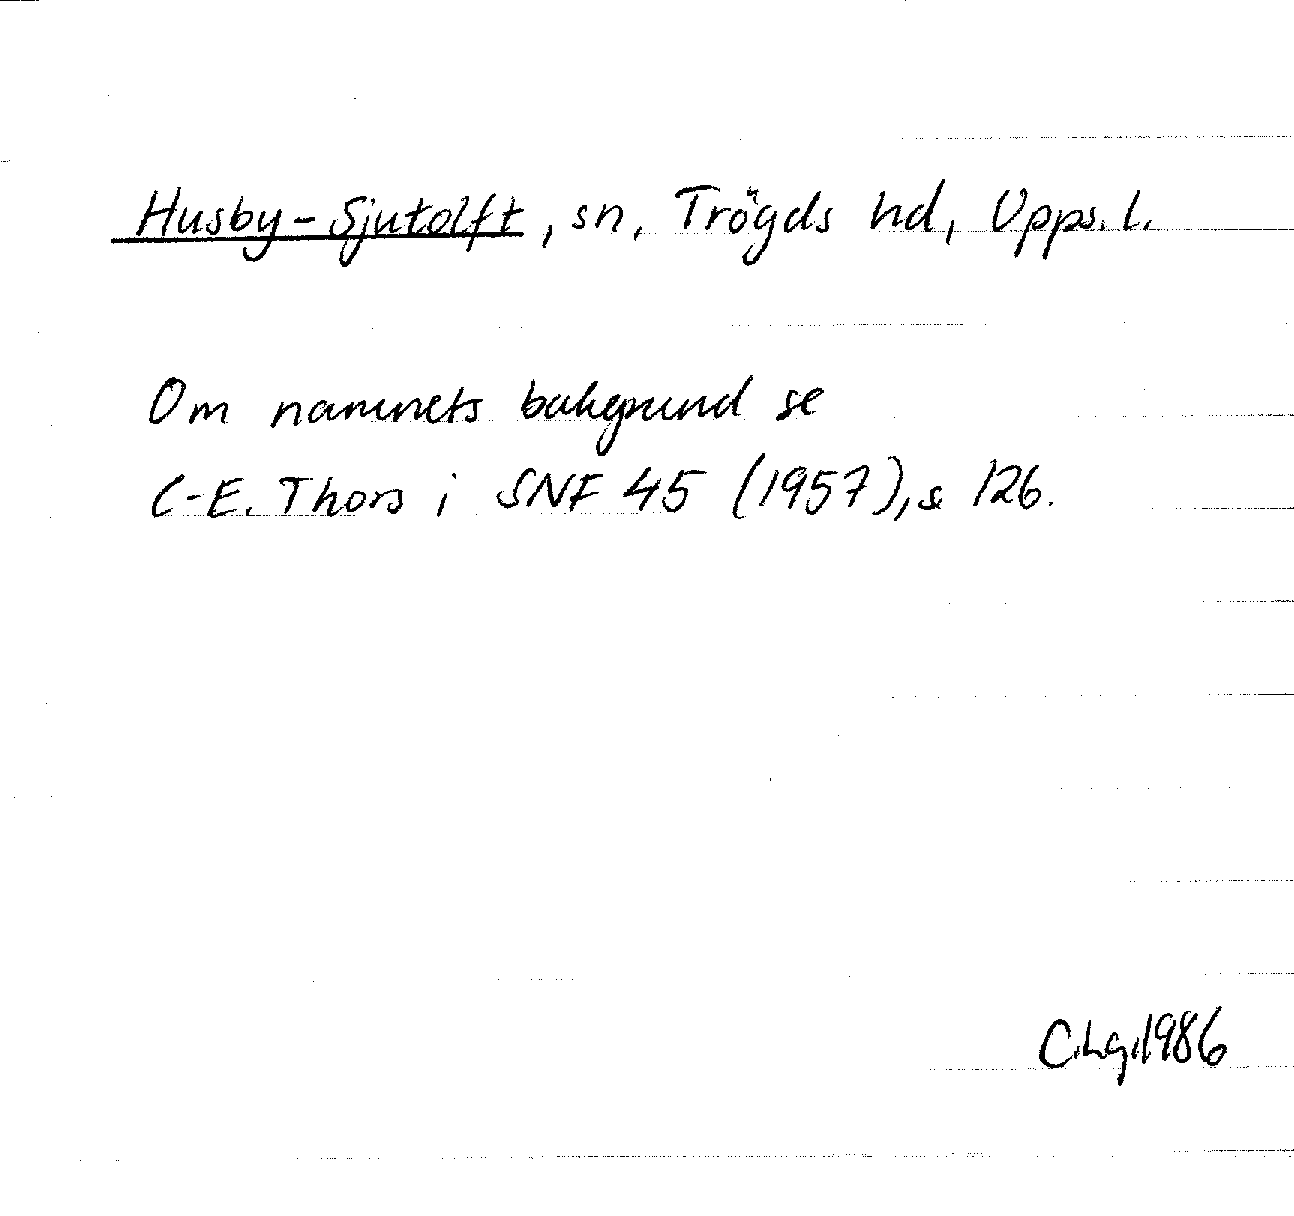 Husby-Sjutolft, sn, Trögds hd, Upps. l.
Om namnets bakgrund se
C-E. Thors i SNF 45 (1957), s 126.
C.Lg.1986